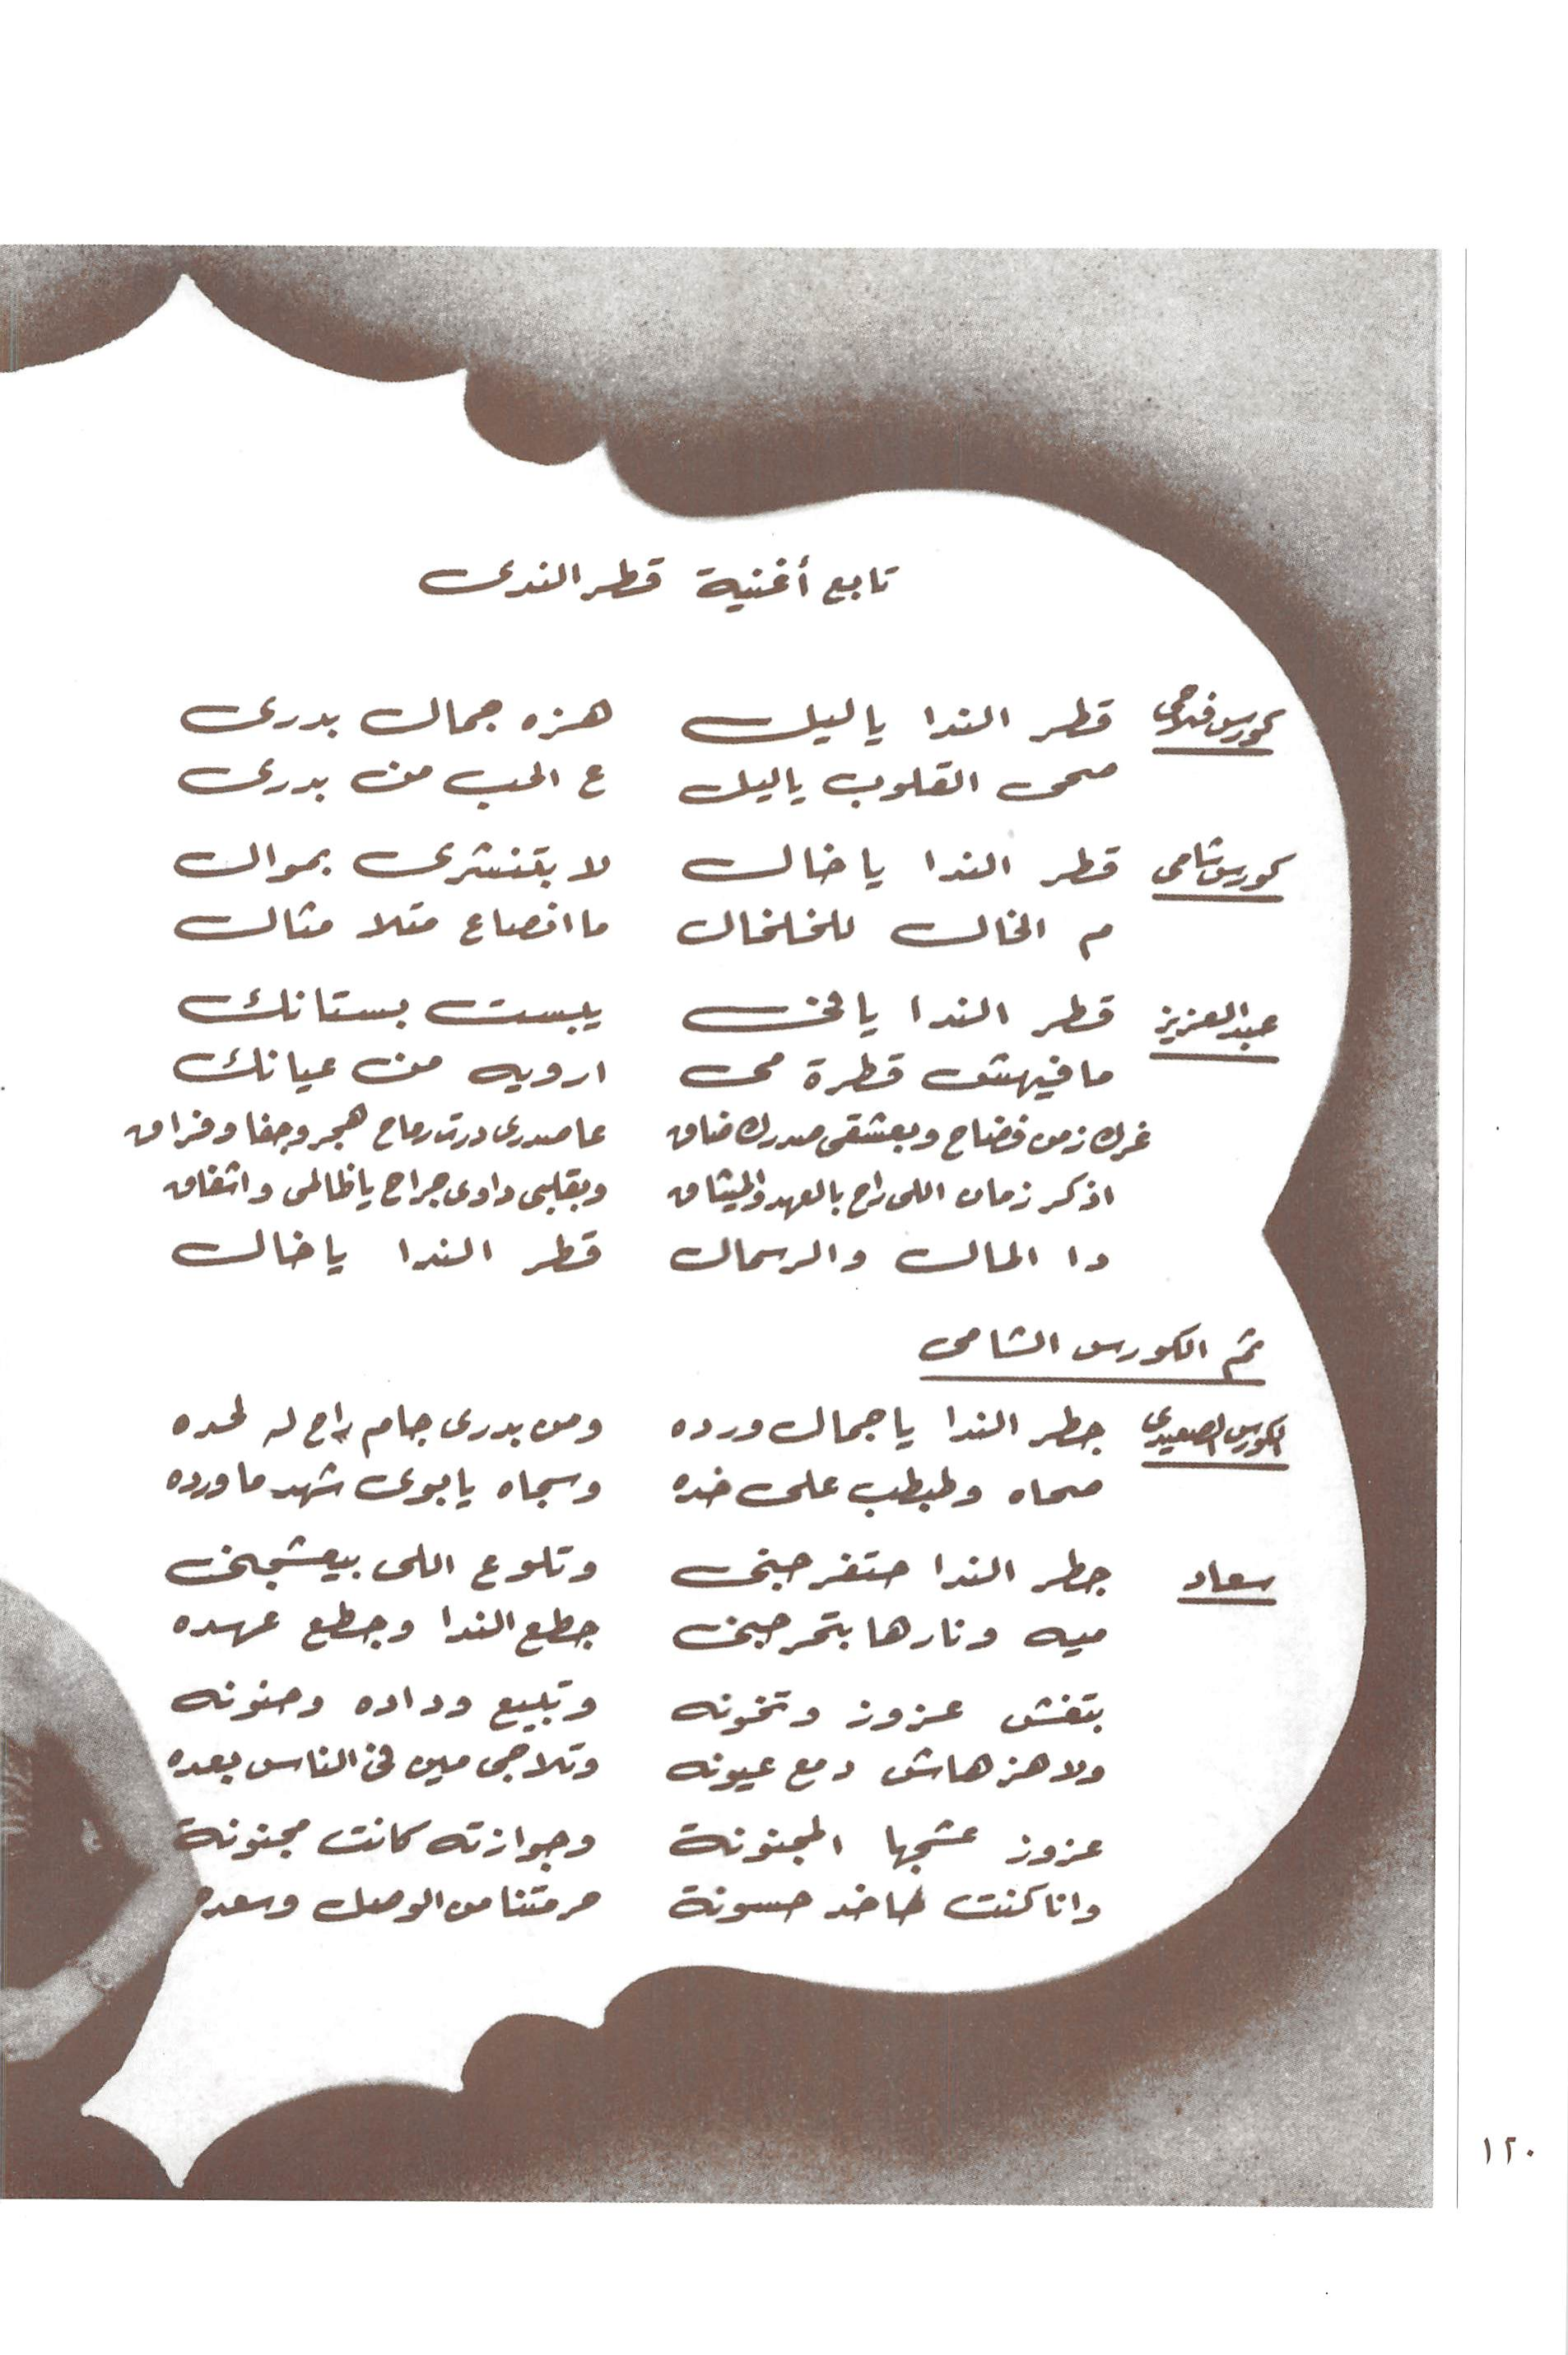 تابع أغنية قطر الندى
كورس فلاحى قطر الندا ياليل هزه جمال بدرى
صحى القلوب ياليل ع الحب من بدرى
كورس شامى قطر الندا ياخال لا بتنشرى بموال
م الخال للخلخال ما انصاع متلا مثال
عبد العزيز قطر الندا يالخى يبست بستانك
مافيهتش قطرة مى ارويه من عيانك
غرك زمن فضاح وبعشقى صدرك ضاق عاصدرى درت رماح هجر وجفا وفراق
اذكر زمان اللى راح بالعهد والميثاق وبقلبى داوى جراح ياظالمى واشفاق
دا المال والرسمال قطر الندا ياخال
ثم الكورس الشامى
الكورس الصعيدى جطر الندا ياجمال ورده ومن بدرى جام راح له لحده
صحاه وطبطب على خده وسجاه يابوى شهد ماورده
سعاد جطر الندا حتغرجنى وتلوع اللى بيعشجنى
ميه ونارها بتحرجنى جطع الندا وجطع عهده
بتغش عزوز وتخونه وتبيع وداده وحنونه
ولا هزهاش دمع عيونه وتلاجى مين فى الناس بعده
عزوز عشجها المجنونة وجوازته كانت مجنونة
وانا كنت حاخد حسونة حرمتنا من الوصل وسعده
١٢٠